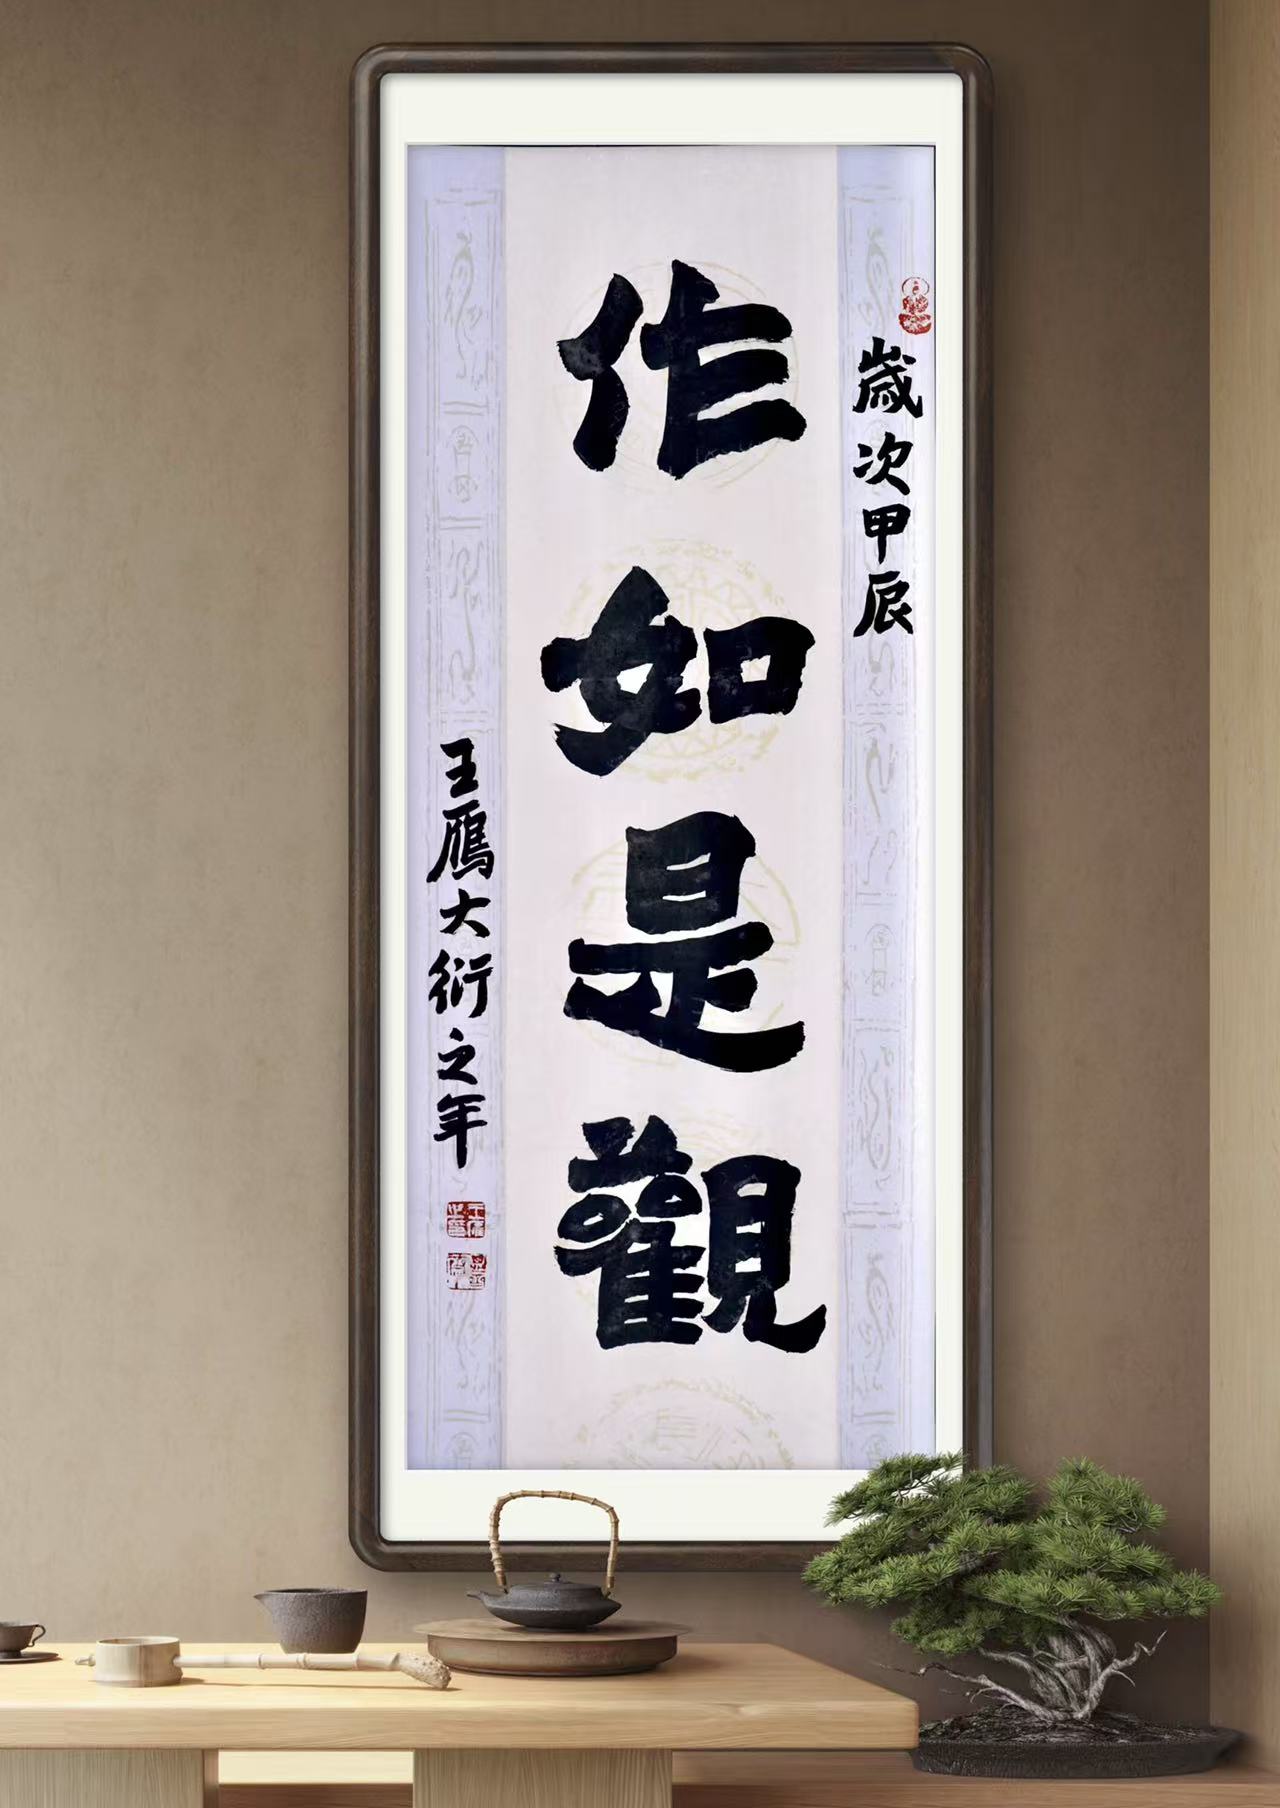 歲次甲辰
作如是觀
王鴈大衍之年